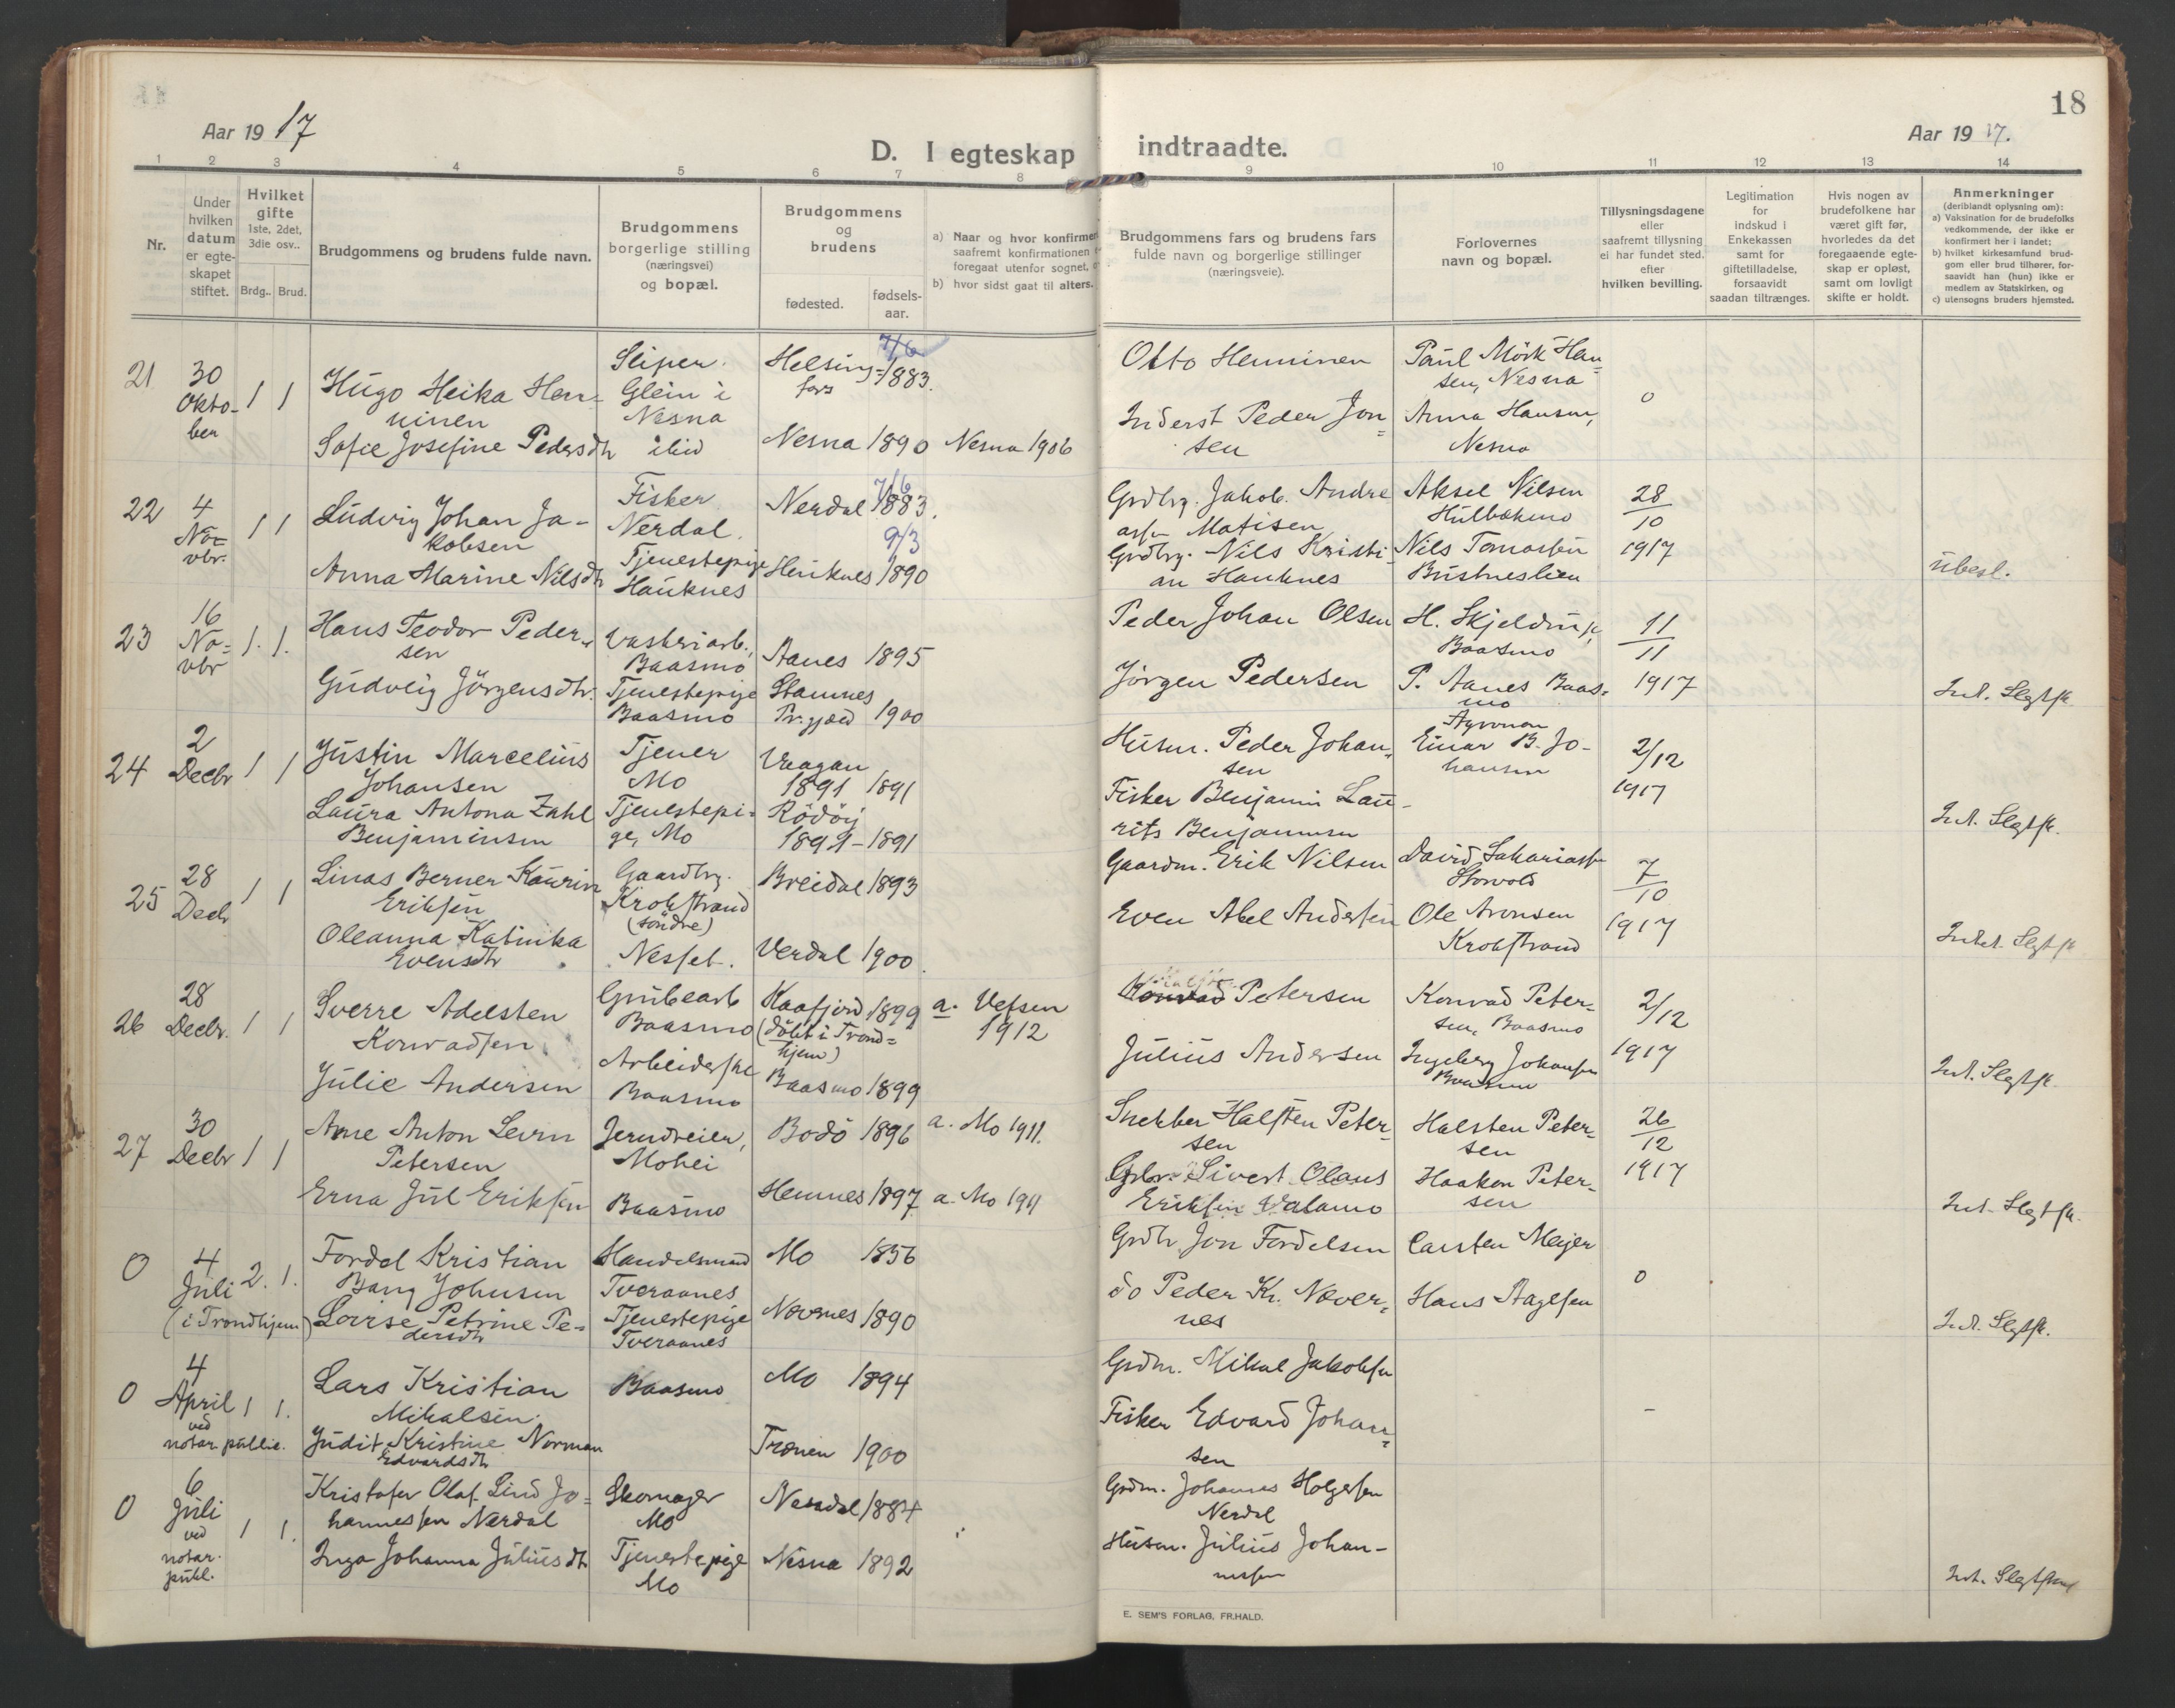 18
Aar 19 17
D. I egteskap indtraadte.
Aar 19 17.
1 2 3 4 5 6 7 8 9 10 11 12 13 14
Nr.
Under hvilken datum er egte-skapet stiftet.
Hvilket gifte 1ste, 2det, 3die osv..
Brdg.. Brud.
Brudgommens og brudens fulde navn.
Brudgommens borgerlige stilling (næringsvei) og bopæl.
Brudgommens og brudens
fødested. fødsels-aar.
a) Naar og hvor konfirmer
saafremt konfirmationen
foregaat utenfor sognet,
b) hvor sidst gaat til alters.
Brudgommens fars og brudens fars
fulde navn og borgerlige stillinger
(næringsveie).
Forlovernes
navn og bopæl.
Tillysningsdagene
eller
saafremt tillysning
ei har fundet sted,
efter
hvilken bevilling.
Legitimation
for
indskud i
Enkekassen
samt for
giftetilladelse,
forsaavidt
saadan tiltrænges.
Hvis nogen av
brudefolkene har
været gift før,
hvorledes da det
foregaaende egte-
skap er opløst,
samt om lovligt
skifte er holdt.
Anmerkninger
(deriblandt oplysning om):
a) Vaksination for de brudefolks
vedkommende, der ikke er
konfirmert her i landet;
b) hvilket kirkesamfund brud-
gom eller brud tilhører, for-
saavidt han (hun) ikke er
medlem av Statskirken, og
c) utensogns bruders hjemsted.
21
30
Okto-
ber
1 1
Hugo Heika Hen-
ninen
Sofie Josefine Pedersdtr
Sliper
Glein i
Nesna
ibid
Helsing-
fors
7/6
1883.
Nesna 1890
Nesna 1906
Otto Henninen
Inderst Peder Jon-
sen
Paul Mörk Han-
sen, Nesna
Anna Hansen,
Nesna
0
22
4
No-
vbr.
1 1
Ludvig Johan Ja-
kobsen
Anna Marine Nilsdtr
Fisker
Nerdal.
Tjenestepige
Hauknes
Nerdal
7/6
1883.
9/3
1890
Grdbr. Jakob Andre
Matisen
Grdbr. Nils Kristi-
an Hauknes
Aksel Nilsen
Nils Tomassen
Bustneslien
28
10
1917
ubesl.
23
16
No-
vbr
1. 1.
Hans Teodor Peder-
sen
Gudveig Jörgensdtr.
Vaskeriarb.,
Baasmo
Tjenestepige
Baasmo
Aanes 1895
Stamnes
Pr.gjæld 1900
Peder Johan Olsen
Jörgen Pedersen
Baasmo
P. Aanes Baas-
mo
11
11
1917
Int. Slegtsk.
24
2
Decbr
1 1
Justin Marcelius
Johansen
Laura Antona Zahl
Benjaminsen
Tjener
Mo
Tjenestepi-
ge, Mo
Vaagan
1891 1891
Rödöy
1891 - 1891
Husm. Peder Johan-
sen
Fisker Benjamin Lau-
rits Benjaminsen
Agronom
Einar B. Jo-
hansen
2/12
1917
Int. Slegtsk.
25
28
Decb
1 1
Linas Berner Kaurin
Eriksen
Oleanna Katinka
Evensdtr
Gaardbr.
Krokstrand
(söndre)
Nesset.
Breidal 1893
Verdal 1900.
Gaardm. Erik Nilsen
Even Abel Andersen
David Sakariassen
Storvold
Ole Aronsen
Krokstrand
7
10
1917
Intet Slegtsk
26
28
Decbr.
1 1
Sverre Adelsten
Konradsen
Julie Andersen
Grubearb
Baasmo
Arbeiderske
Baasmo
Kaafjord 1899
(döbt i Trond-
hjem)
Baasmo 1899
a. Vefsen
1912
Konrad Petersen
Julius Andersen
Konrad Peter-
sen, Baasmo
Ingeborg Johansen
Baasmo
2/12
1917
Int. Slegtsk.
27
30
Decbr
1 1
Arne Anton Levin
Petersen
Erna Jul Eriksen
Jerndreier,
Mohei
Baasmo
Bodö 1896
Hemnes 1897
a. Mo 1911.
a. Mo 1911
Snekker Halsten Peter-
sen
Grbr. Sivert Olaus
Eriksen
Halsten Peter-
sen
Haakon Peter-
sen
26
12
1917
Int. Slegtsk.
0
4
Juli
(i Trondhjem)
2. 1.
Fordel Kristian
Bang Johnsen
Lovise Petrine Pe-
dersdtr
Handelsmand
Tveraanes
Tjenestepige
Tveraanes
Mo 1856
Nævernes 1890
Grdbr Jon Fordelsen
do Peder Kr. Næver-
nes
Carsten Meyer
Hans Aagesen
0
Int. Slegtsk.
0
4
April
ved
notar. public.
1 1.
Lars Kristian
Mikalsen.
Judit Kristine Norman
Edvardsdtr
Baasmo
Mo 1894
Trænen 1900
Grdm. Mikal Jakobsen
Fisker Edvard Johan-
sen
-
0
6
Juli
ved
notar.
publ.
1 1.
Kristofer Olaf Lind Jo-
hannessen Nerdal
Inga Johanna Juliusdtr
Skomager
Mo
Tjenestepige
Mo
Nerdal 1884
Nesna 1892
Grdm. Johannes Holgersen
Nerdal
Husm. Julius Johan-
nessen
Int. Slegtskap
E. SEM'S FORLAG, FR.HALD.